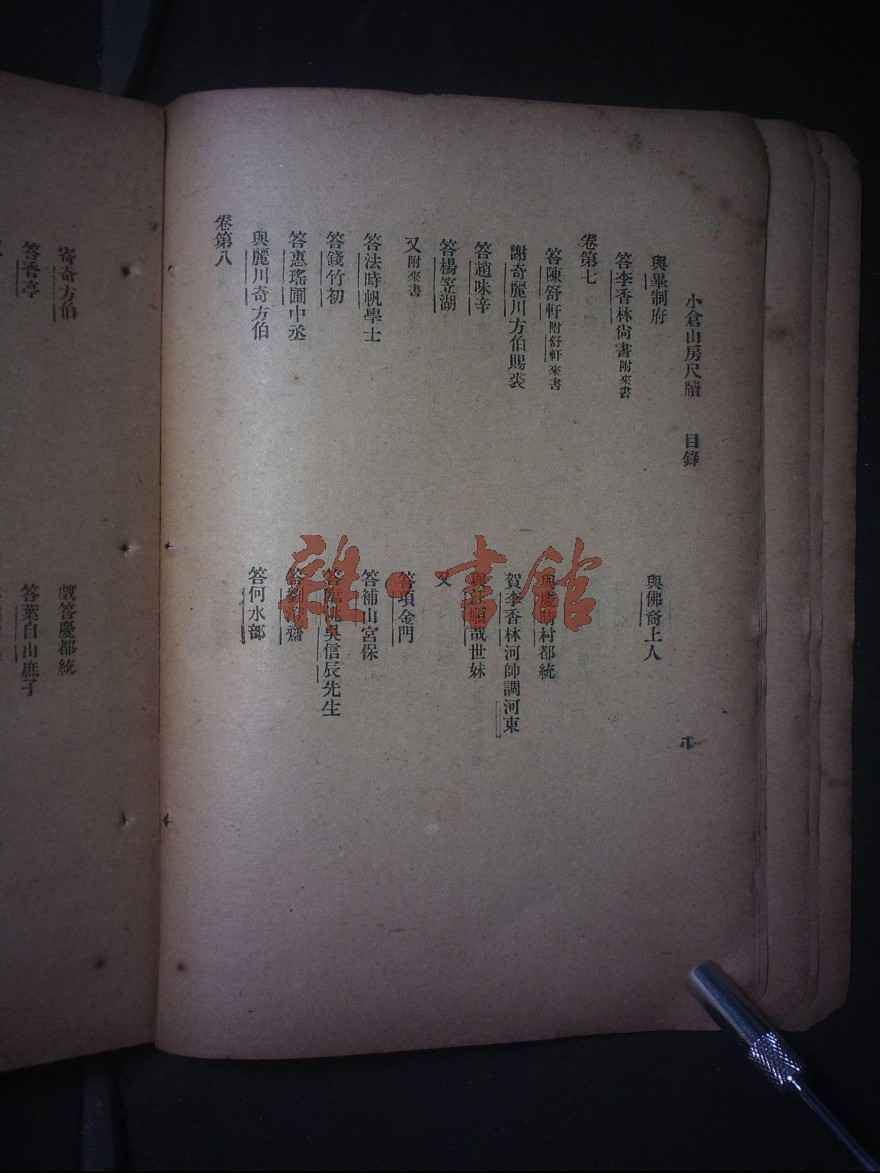 小倉山房尺牘 目錄
與畢制府
與佛裔上人
答李香林尙書附來書
卷第七
答陳舒軒附舒軒來書
與慶晴村都統
謝奇麗川方伯賜裘
賀李香林河帥調河東
答趙味辛
世妹
答楊笠湖
又
又附來書
答項金門
答法時帆學士
答補山宮保
答錢竹初
吳信辰先生
答惠瑤圃中丞
齋
與麗川奇方伯
答何水部
卷第八
寄奇方伯
戲答慶都統
亭
答葉自山庶子
雜·書館